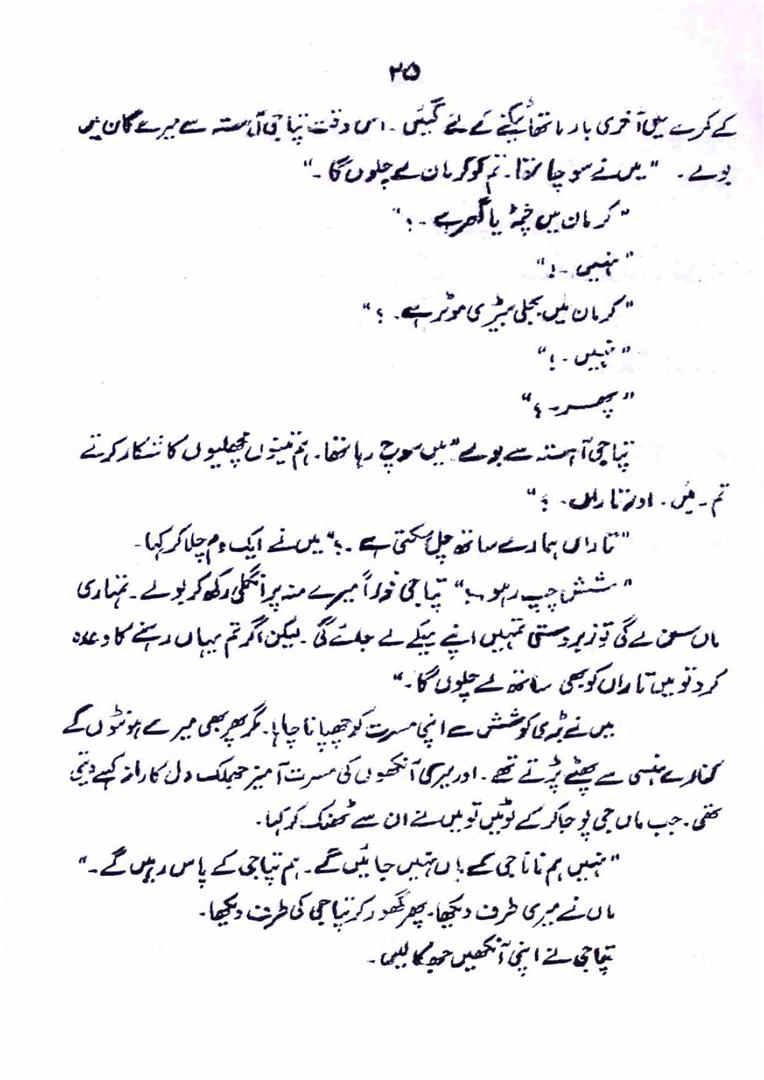 ۲۵
کے کمرے میں آخری بار ماتھا ٹیکنے کے لئے گئیں ۔ اس وقت پتاجی آہستہ سے میرے کان میں
بولے ۔ "میں نے سوچا تھا ۔ تم کو کرمان لے چلوں گا ۔"
"کرمان میں چڑیا گھر ہے ۔؟"
"نہیں ۔!"
"کرمان میں بجلی کی موٹر ہے ۔ ؟"
"نہیں ۔!"
"پھر ۔؟"
پتاجی آہستہ سے بولے "میں سوچ رہا تھا ۔ ہم تینوں مچھلیوں کا شکار کرتے
تم ۔ میں ۔ اور تاراں ۔ ؟"
"تاراں ہمارے ساتھ چل سکتی ہے ۔؟" میں نے ایک دم چلا کر کہا ۔
"شش چپ رہو ۔!" پتاجی فوراً میرے منہ پر انگلی رکھ کر بولے ۔ تمہاری
ماں سن لے گی تو زبردستی تمہیں اپنے میکے لے جائے گی ۔ لیکن اگر تم یہاں رہنے کا وعدہ
کرو تو میں تاراں کو بھی ساتھ لے چلوں گا ۔"
میں نے بڑی کوشش سے اپنی مسرت کو چھپانا چاہا ۔ مگر پھر بھی میرے ہونٹوں کے
کنارے ہنسی سے پھٹے پڑتے تھے ۔ اور میری آنکھوں کی مسرت آمیز جھلک دل کا راز کہے دیتی
تھی ۔ جب ماں جی پوجا کر کے لوٹیں تو میں نے ان سے ٹھنک کر کہا ۔
"نہیں ہم نانا جی کے ہاں نہیں جائیں گے ۔ ہم پتاجی کے پاس رہیں گے ۔"
ماں نے میری طرف دیکھا ۔ پھر گھور کر پتاجی کی طرف دیکھا ۔
پتاجی نے اپنی آنکھیں جھکا لیں ۔